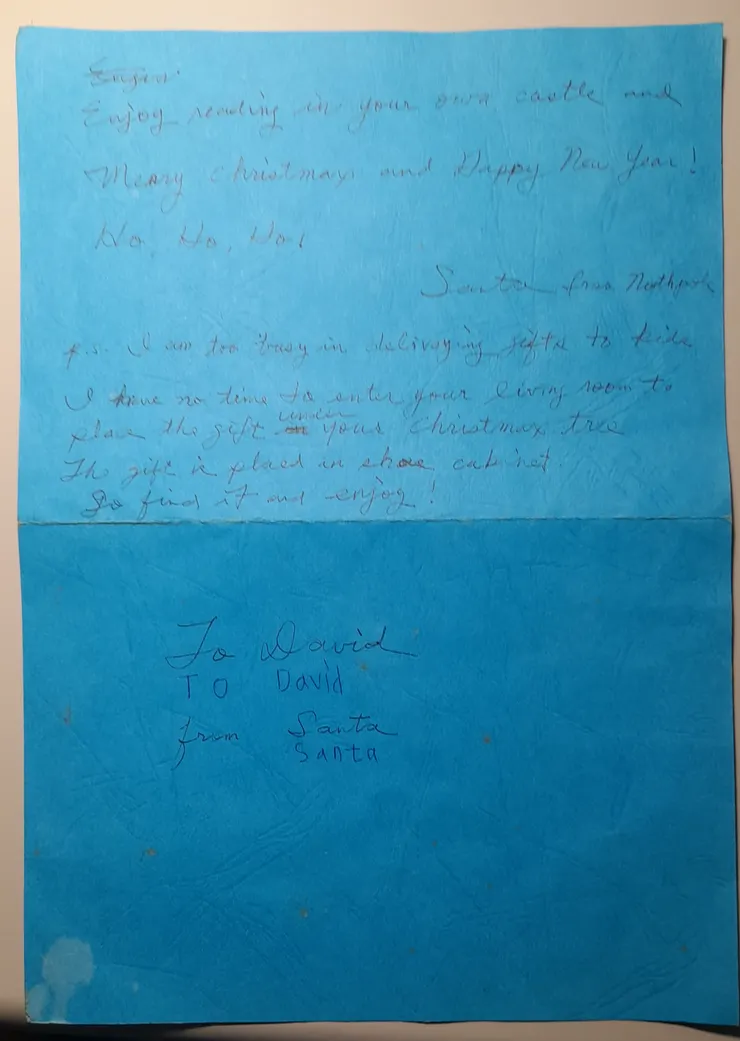 Enjoy reading in your own castle and
Merry Christmas and Happy New Year!
Ho, Ho, Ho!
Santa from Northpole
p.s. I am too busy in delivering gifts to kids
I have no time to enter your living room to
place the gift under your Christmas tree
The gift is placed in shoe cabinet.
Go find it and enjoy!
To David
TO David
from Santa
Santa